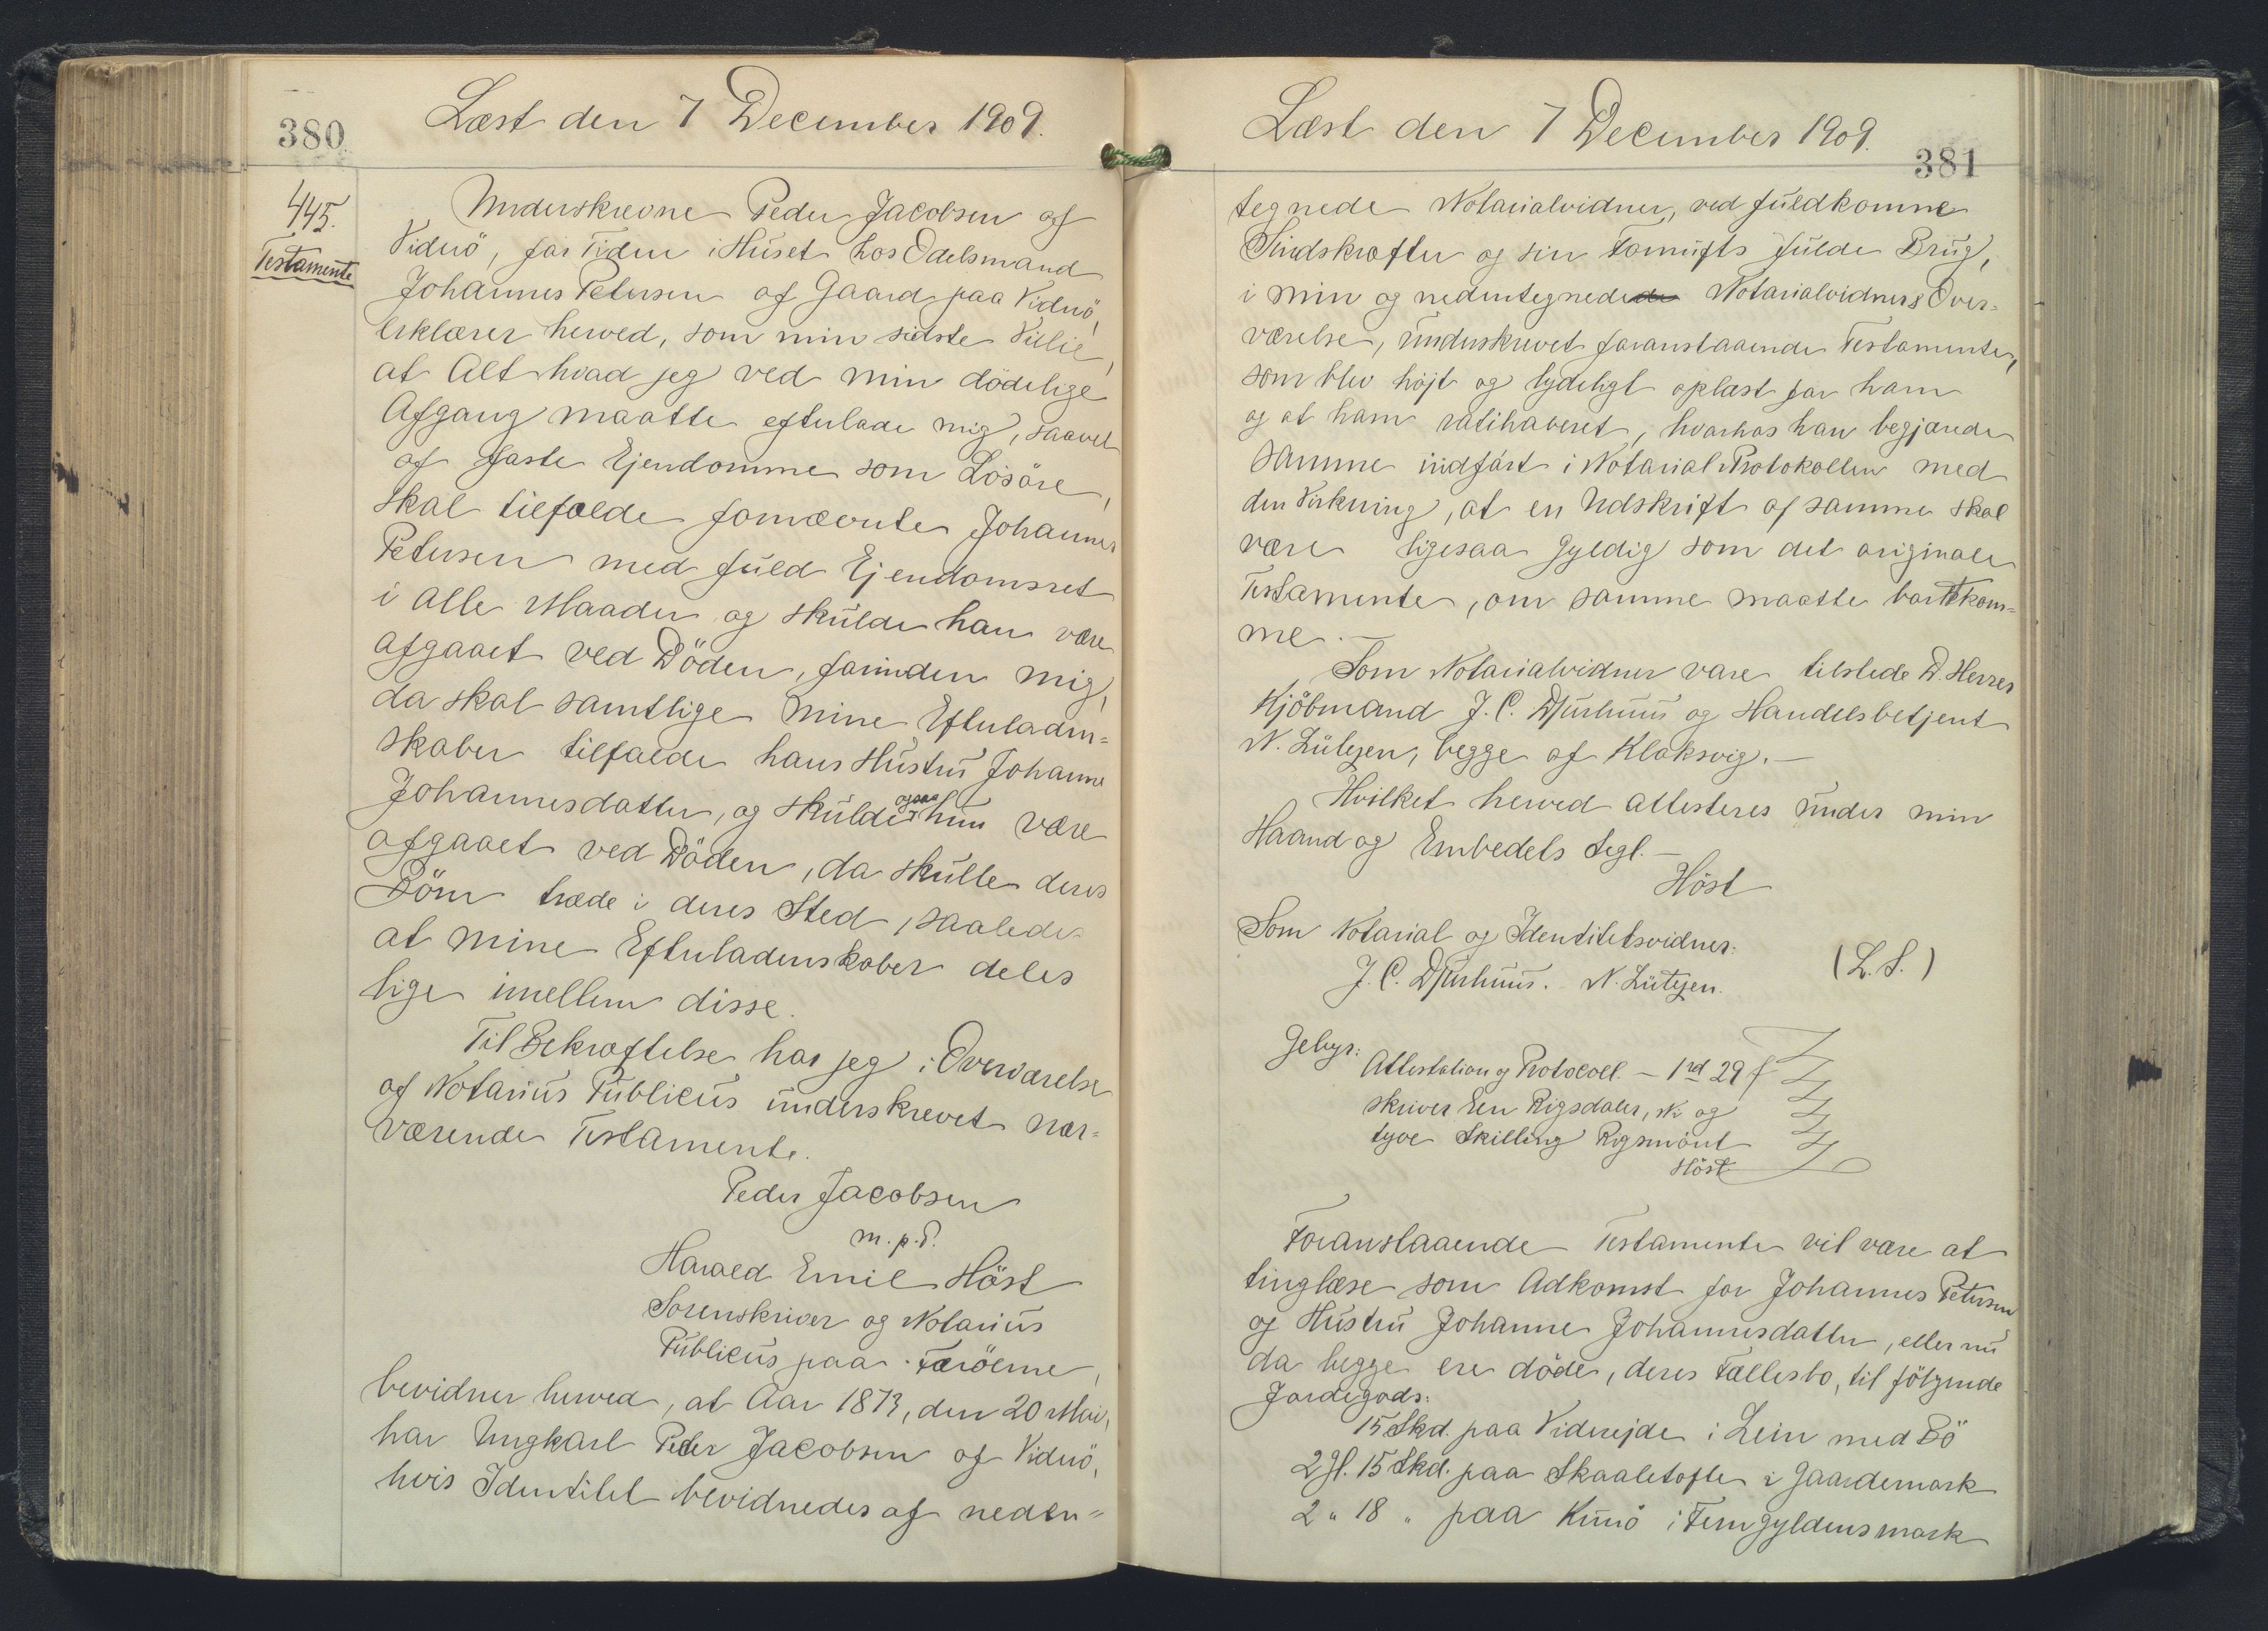 380
Læst den 7 December 1909.
445.
Testamente
Underskrevne Peder Jacobsen af
Viderö, for Tiden i Huset hos Odelsmand
Johannes Petersen af Gaard paa Viderö,
erklærer herved, som min sidste Villie,
at Alt hvad jeg ved min dödelige
Afgang maatte efterlade mig, saavel
af faste Ejendomme som Lösöre,
skal tilfalde fornævnte Johannes
Petersen med fuld Ejendomsret
i alle Maader og skulde han være
afgaaet ved Döden, forinden mig,
da skal samtlige mine Efterladen=
skaber tilfalde hans Hustru Johanne
Johannesdatter, og skulde ogsaa hun være
afgaaet ved Döden, da skulle deres
Börn træde i deres Sted, saaledes
at mine Efterladenskaber deles
lige imellem disse.
Til Bekræftelse har jeg i Overværelse
af Notarius Publicus underskrevet nær=
værende Testamente.
Peder Jacobsen
m. p. P.
Harald Emil Höst
Sorenskriver og Notarius
Publicus paa Færöerne,
bevidner herved, at Aar 1873, den 20 Mai,
har Ungkarl Peder Jacobsen af Viderö,
hvis Identitet bevidnedes af neden=
Læst den 7 December 1909.
381
tegnede Notarialvidner, ved fuldkomne
Sindskræfter og sin Fornufts fulde Brug,
i min og nedentegnedede Notarialvidners Over=
værelse, underskrevet foranstaaende Testamente,
som blev höjt og tydeligt oplæst for ham
og af ham ratihaberet, hvorhos han begjærede
samme indfört i Notarial Protokollen med
den Virkning, at en Udskrift af samme skal
være ligesaa gyldig som det originale
Testamente, om samme maatte bortkom=
me.—
Som Notarialvidner vare tilstede D. Herrer
Kjöbmand J. C. Djurhuus og Handelsbetjent
N. Lützen, begge af Klaksvig.—
Hvilket herved attesteres under min
Haand og Embedets Segl.—
Höst
Som Notarial og Identitetsvidner:
J. C. Djurhuus. N. Lützen.
(L. S.)
Gebyr:
Attestation og Protocoll. — 1 rd 29 ʃ
skriver Een Rigsdaler, Ni og
tyve Skilling Rigsmönt
Höst
Foranstaaende Testamente vil være at
tinglæse som Adkomst for Johannes Petersen
og Hustru Johanne Johannesdatter, eller nu
da begge ere döde, deres Fællesbo, til fölgende
Jordegods:
15 Skd. paa Viderejde i Lein med Bö
2 Gl. 15 Skd. paa Skaaletofte i Gaardemark
2 " 18 " paa Kunö i Femgyldensmark